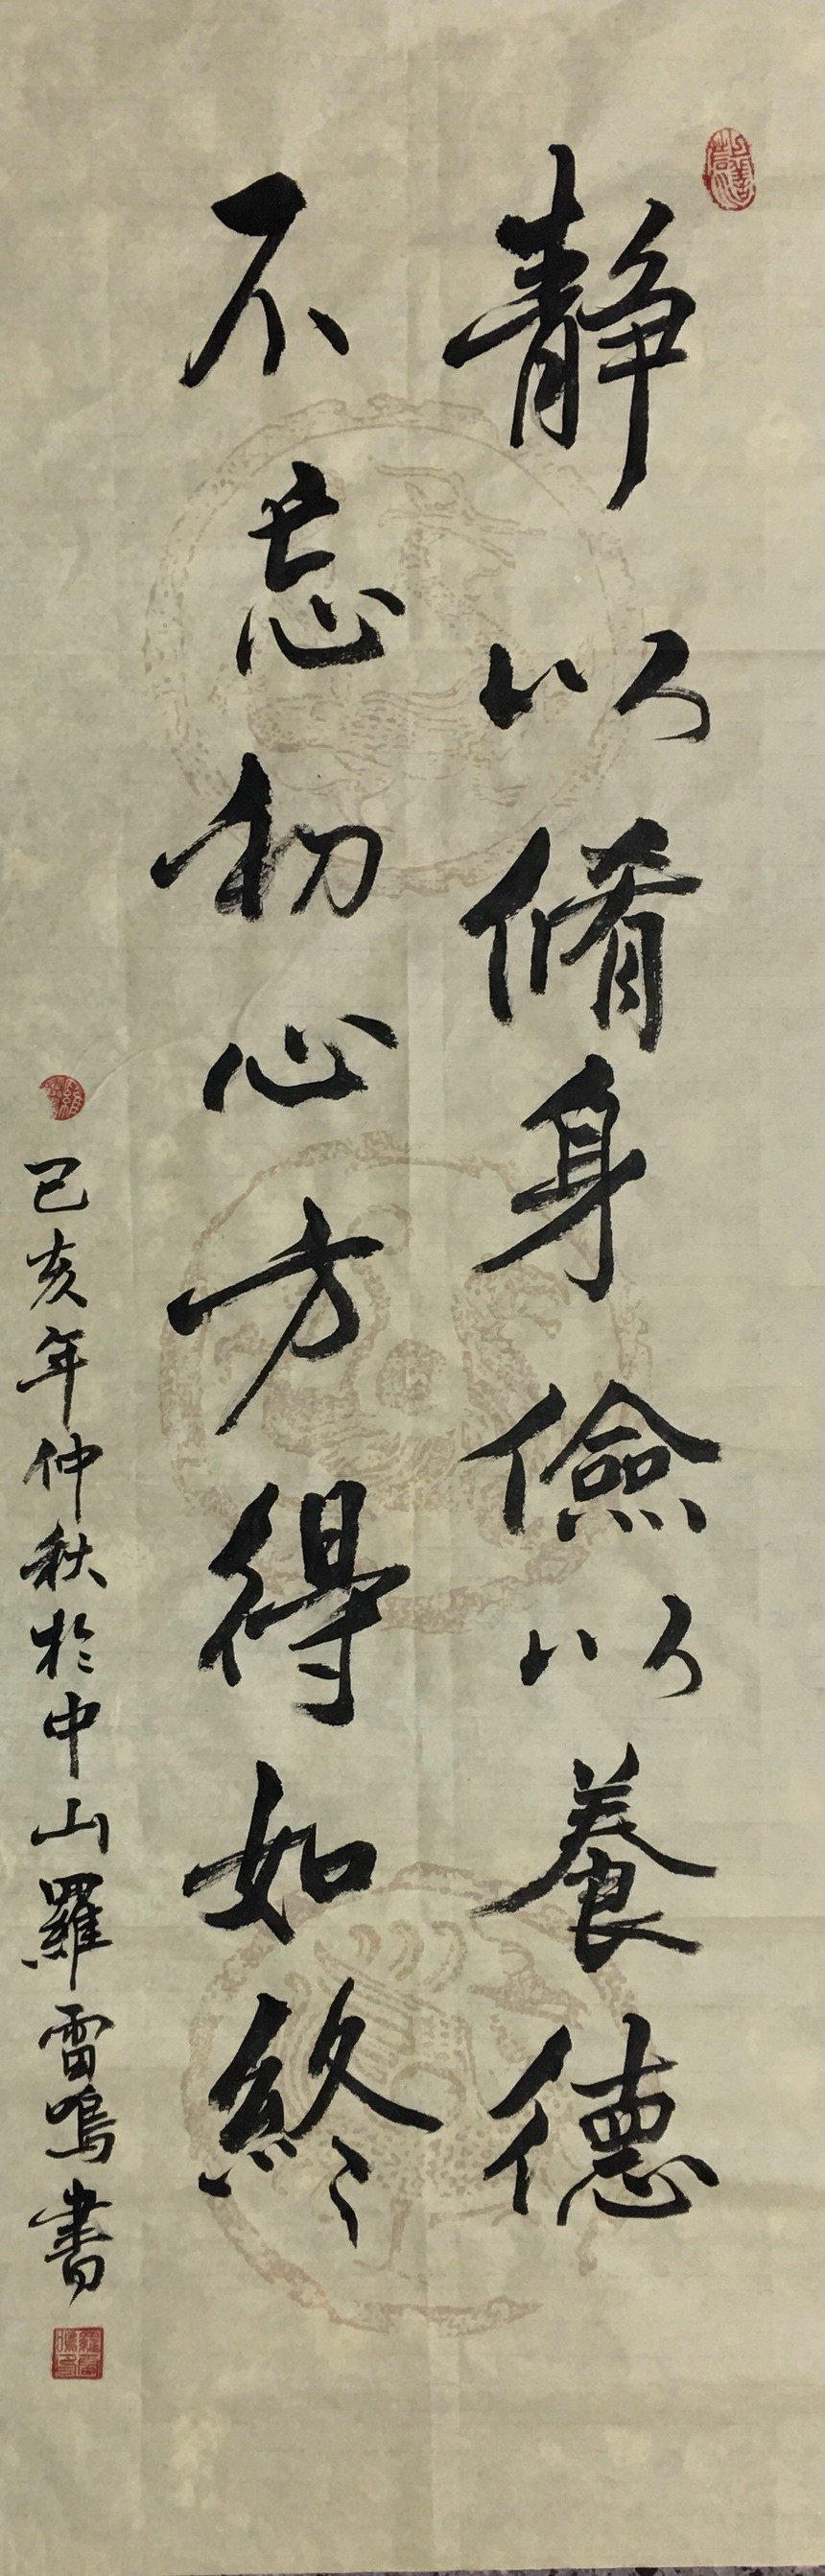 静以脩身儉以養德
不忘初心方得如終
己亥年仲秋於中山羅雷鳴書